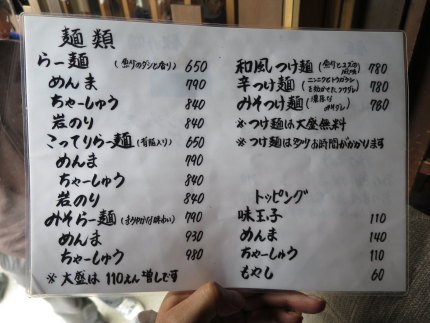 麺類
らー麺 (魚のダシと香り) 650
めんま 790
ちゃーしゅう 840
岩のり 840
こってりらー麺 (背脂入り) 650
めんま 790
ちゃーしゅう 840
岩のり 840
みそらー麺 (まろやかな味わい) 790
めんま 930
ちゃーしゅう 980
※大盛は110えん増しです
和風つけ麺 (魚とユズの風味) 780
辛つけ麺 (ニンニクとトウガラシを効かせたツケダレ) 780
みそつけ麺 (濃厚なみそダレ) 780
※つけ麺は大盛無料
※つけ麺は多少お時間がかかります
トッピング
味玉子 110
めんま 140
ちゃーしゅう 110
もやし 60